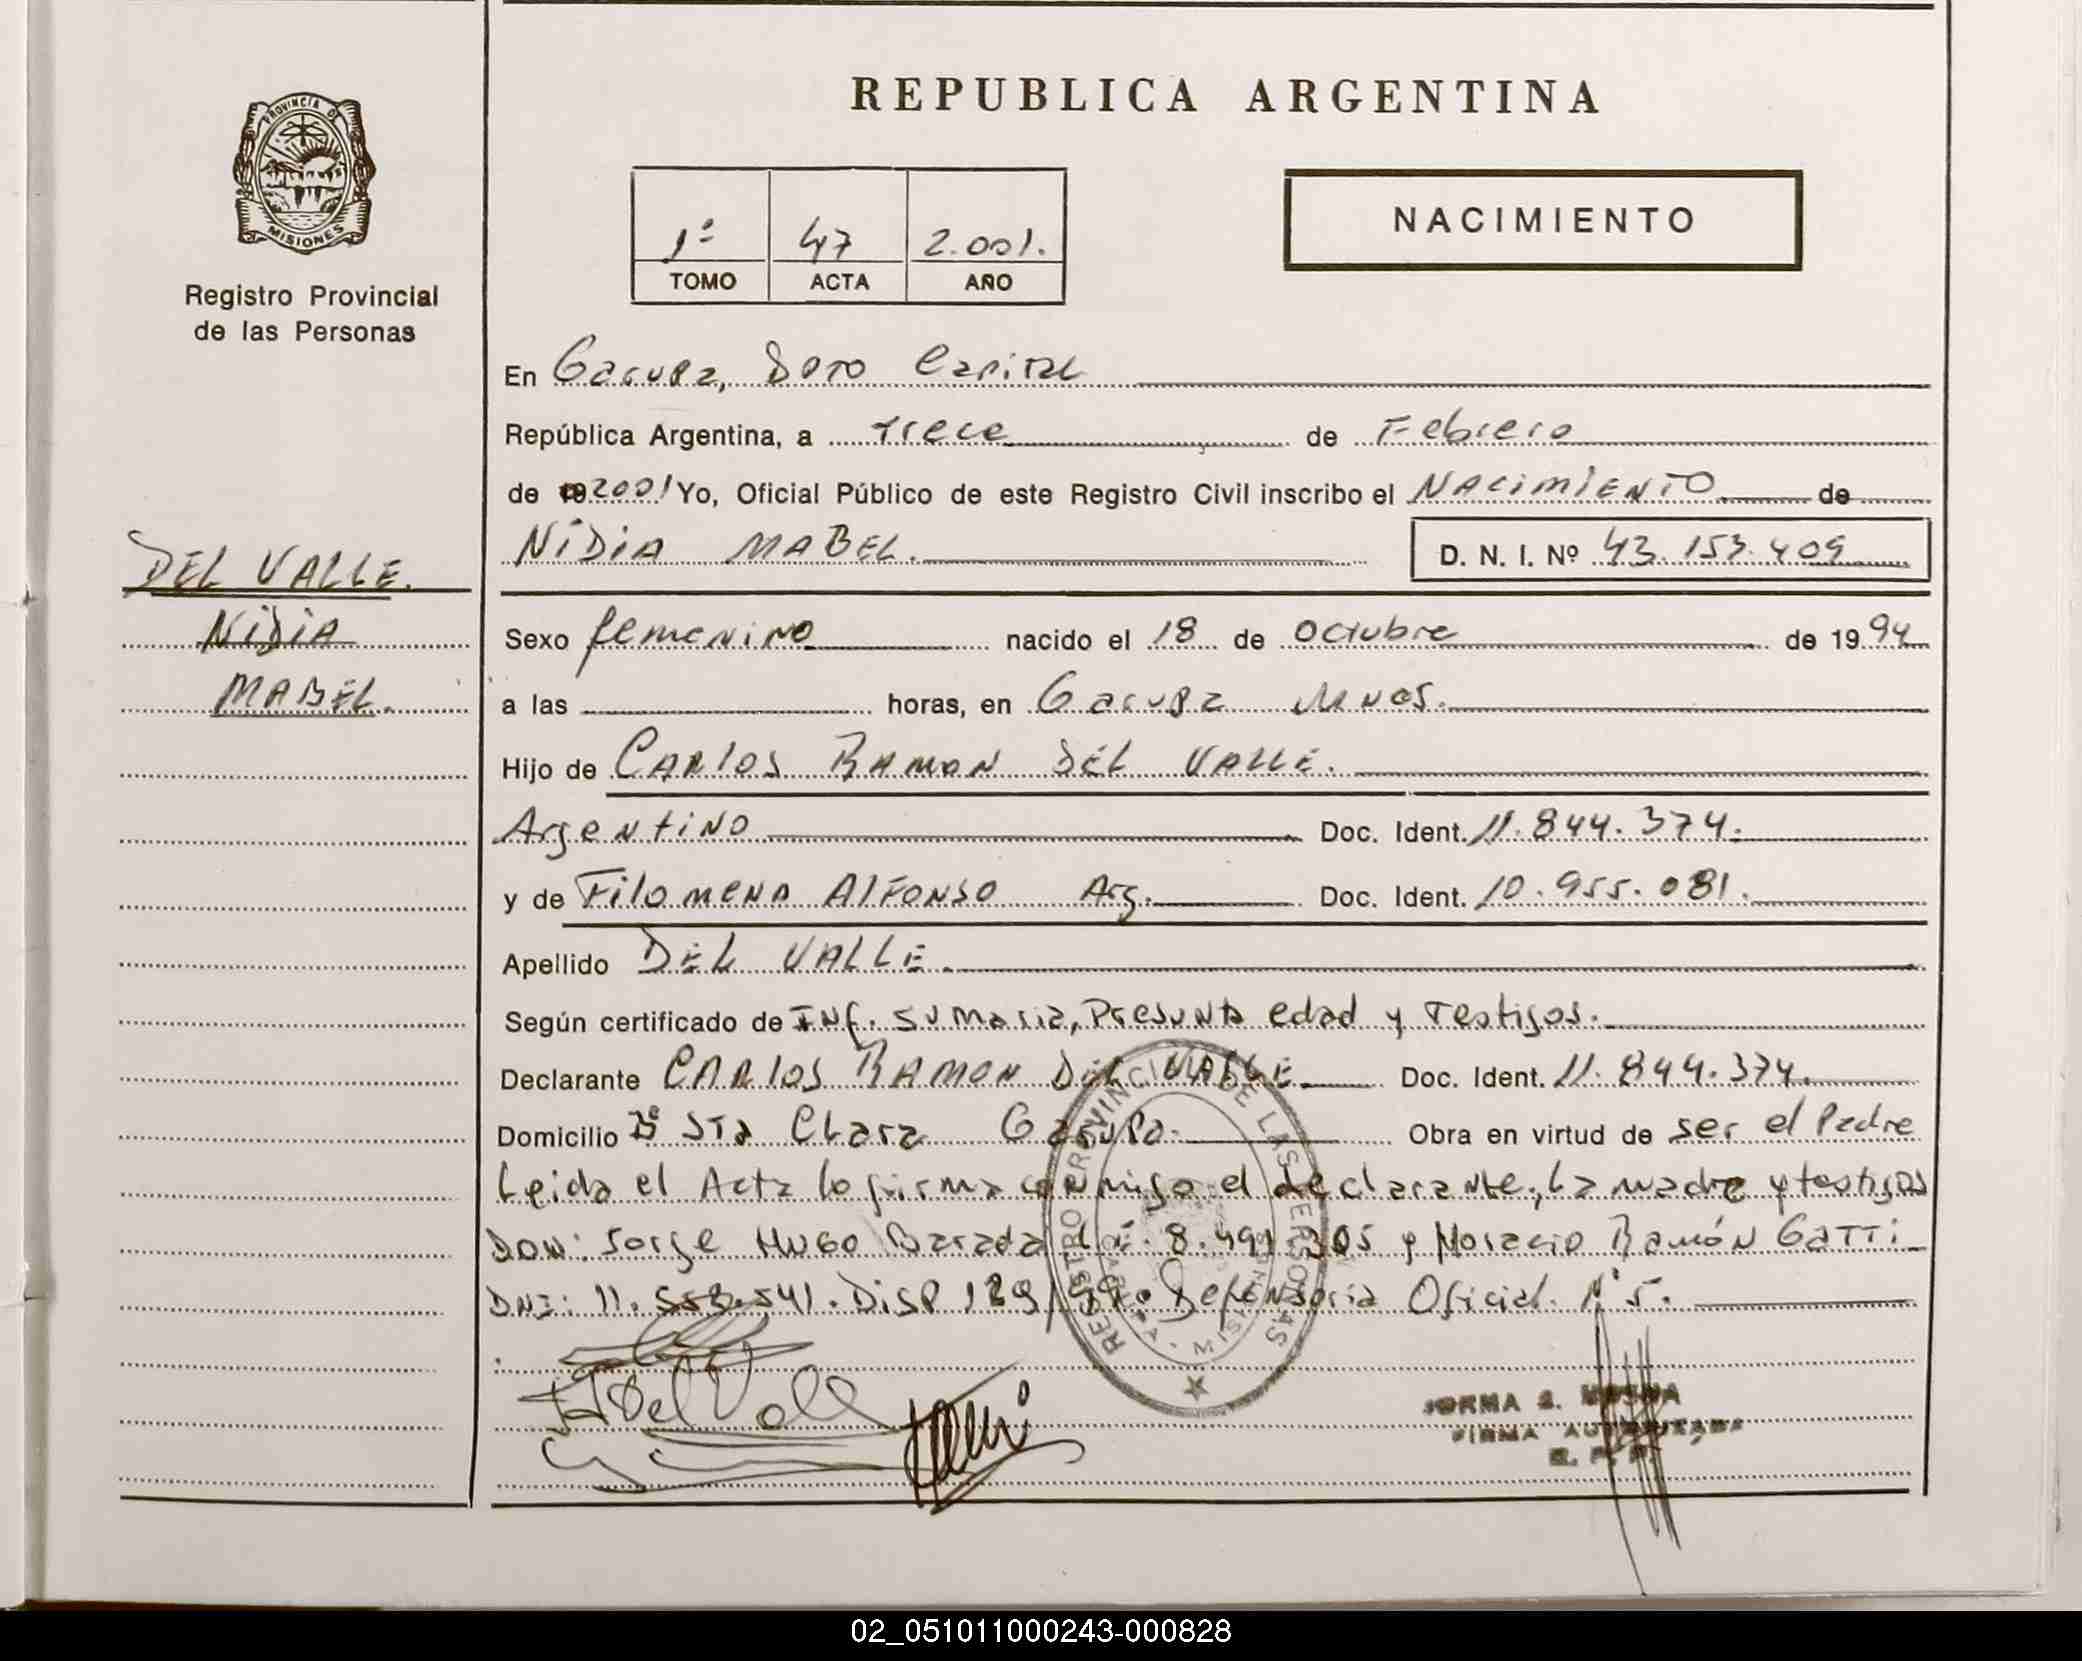 REPUBLICA ARGENTINA
PROVINCIA DE
MISIONES
Registro Provincial
de las Personas
1º 47 2.001.
TOMO ACTA AÑO
NACIMIENTO
En Garupa, Dpto Capital
República Argentina, a trece de Febrero
de 2001 Yo, Oficial Público de este Registro Civil inscribo el NACIMIENTO de
NIDIA MABEL. D. N. I. Nº 43.153.409
DEL VALLE.
NIDIA
MABEL.
Sexo femenino nacido el 18 de octubre de 1994
a las horas, en Garupa Mnes.
Hijo de CARLOS RAMON DEL VALLE.
Argentino Doc. Ident. 11.844.374.
y de Filomena Alfonso Arg. Doc. Ident. 10.955.081.
Apellido DEL VALLE.
Según certificado de Inf. sumaria, Presunta edad y Testigos.
Declarante CARLOS RAMON DEL VALLE Doc. Ident. 11.844.374.
Domicilio Bº Sta Clara Garupa. Obra en virtud de ser el Padre
Leida el Acta lo firma conmigo el declarante, La madre y testigos
DON: Jorge Hugo Barada L.E. 8.491.305 y Horacio Ramón GATTI
DNI: 11.553.541. Disp 129/99. Defensoria Oficial Nº 5.
REGISTRO PROVINCIAL DE LAS PERSONAS
GARUPA - MISIONES
Del Valle
FIRMA AUTORIZADA
R. P. P.
02_051011000243-000828